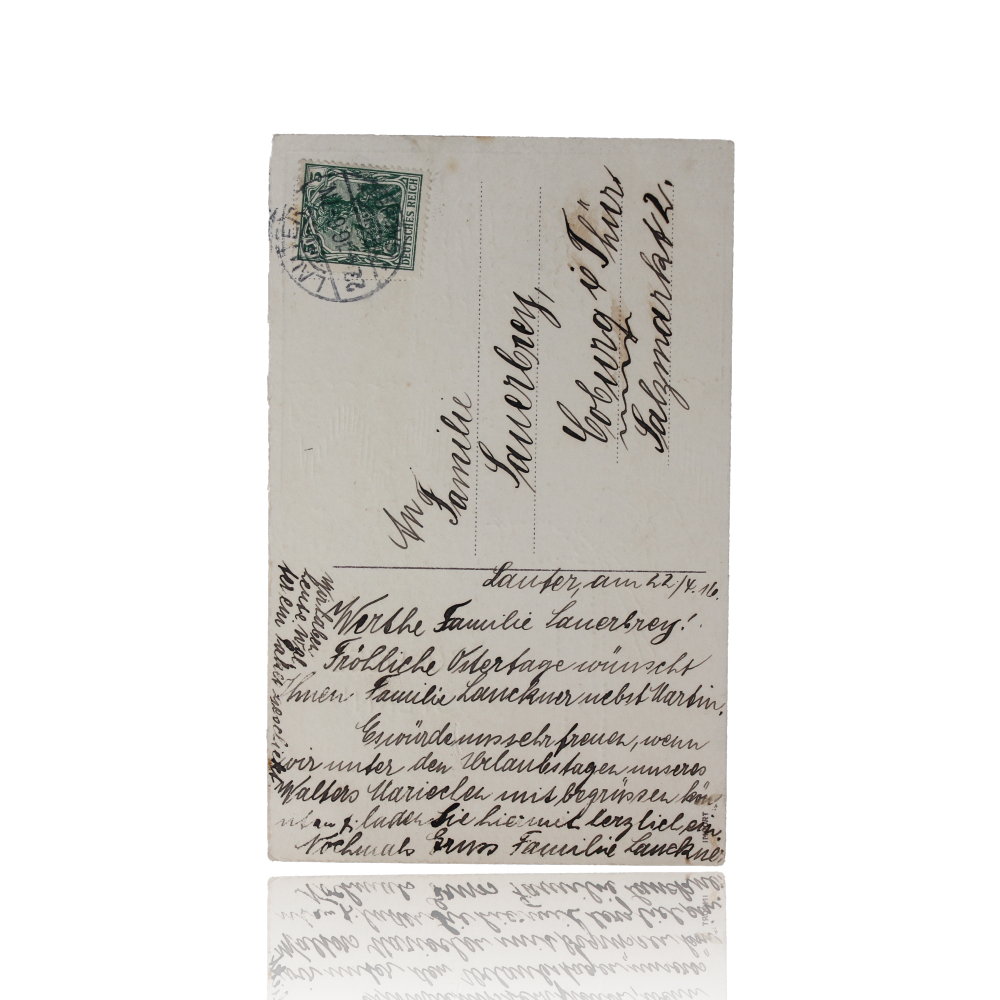 DEUTSCHES REICH
5
5
LAUTER
An
Familie
Sauerbrey,
Coburg i Thür.
Salzmarkt 2.
Lauter, am 22./4. 16.
Werthe Familie Sauerbrey!
Fröhliche Ostertage wünscht
Ihnen Familie Lauckner nebst Martin.
Es würde uns sehr freuen, wenn
wir unter den Urlaubstagen unseres
Walters Mariechen mit begrüssen kön-
nten & laden Sie hiermit herzlich ein.
Nochmals Gruss Familie Lauckner
Wir haben